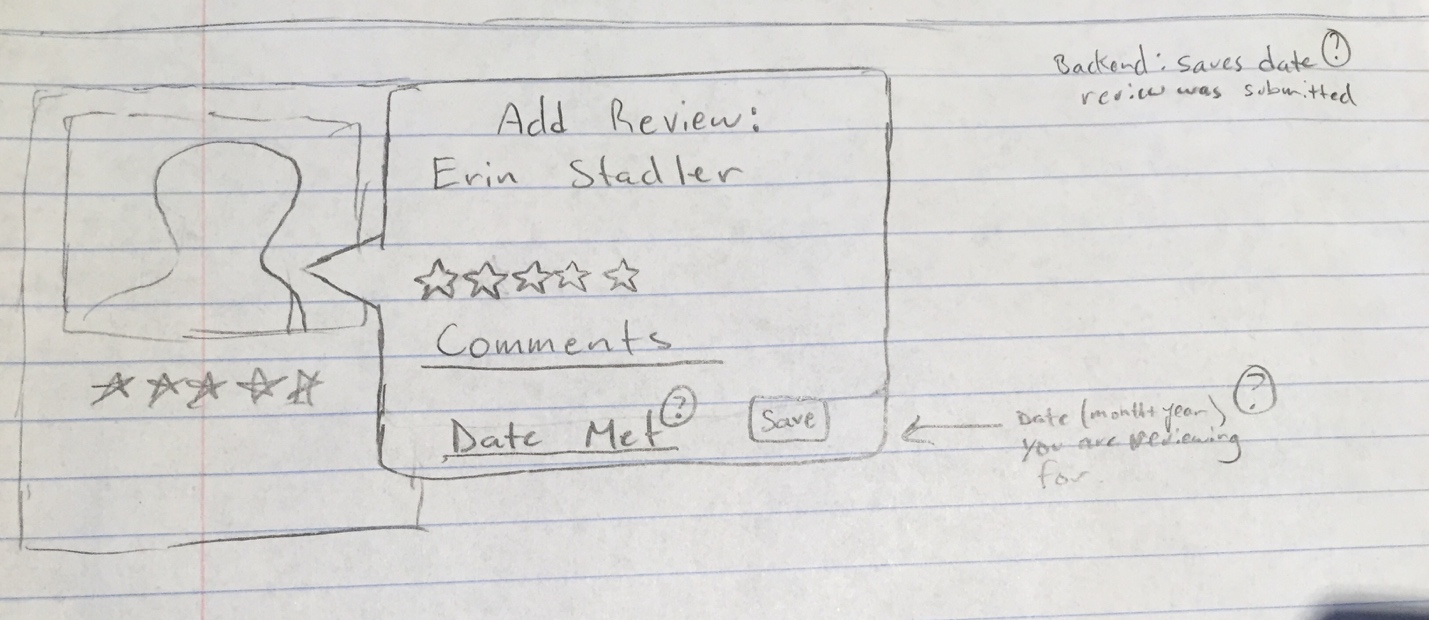 Backend: saves date ?
review was submitted
Add Review:
Erin Stadler
Comments
Date Met ?
Save
Date (month + year) ?
you are reviewing
for